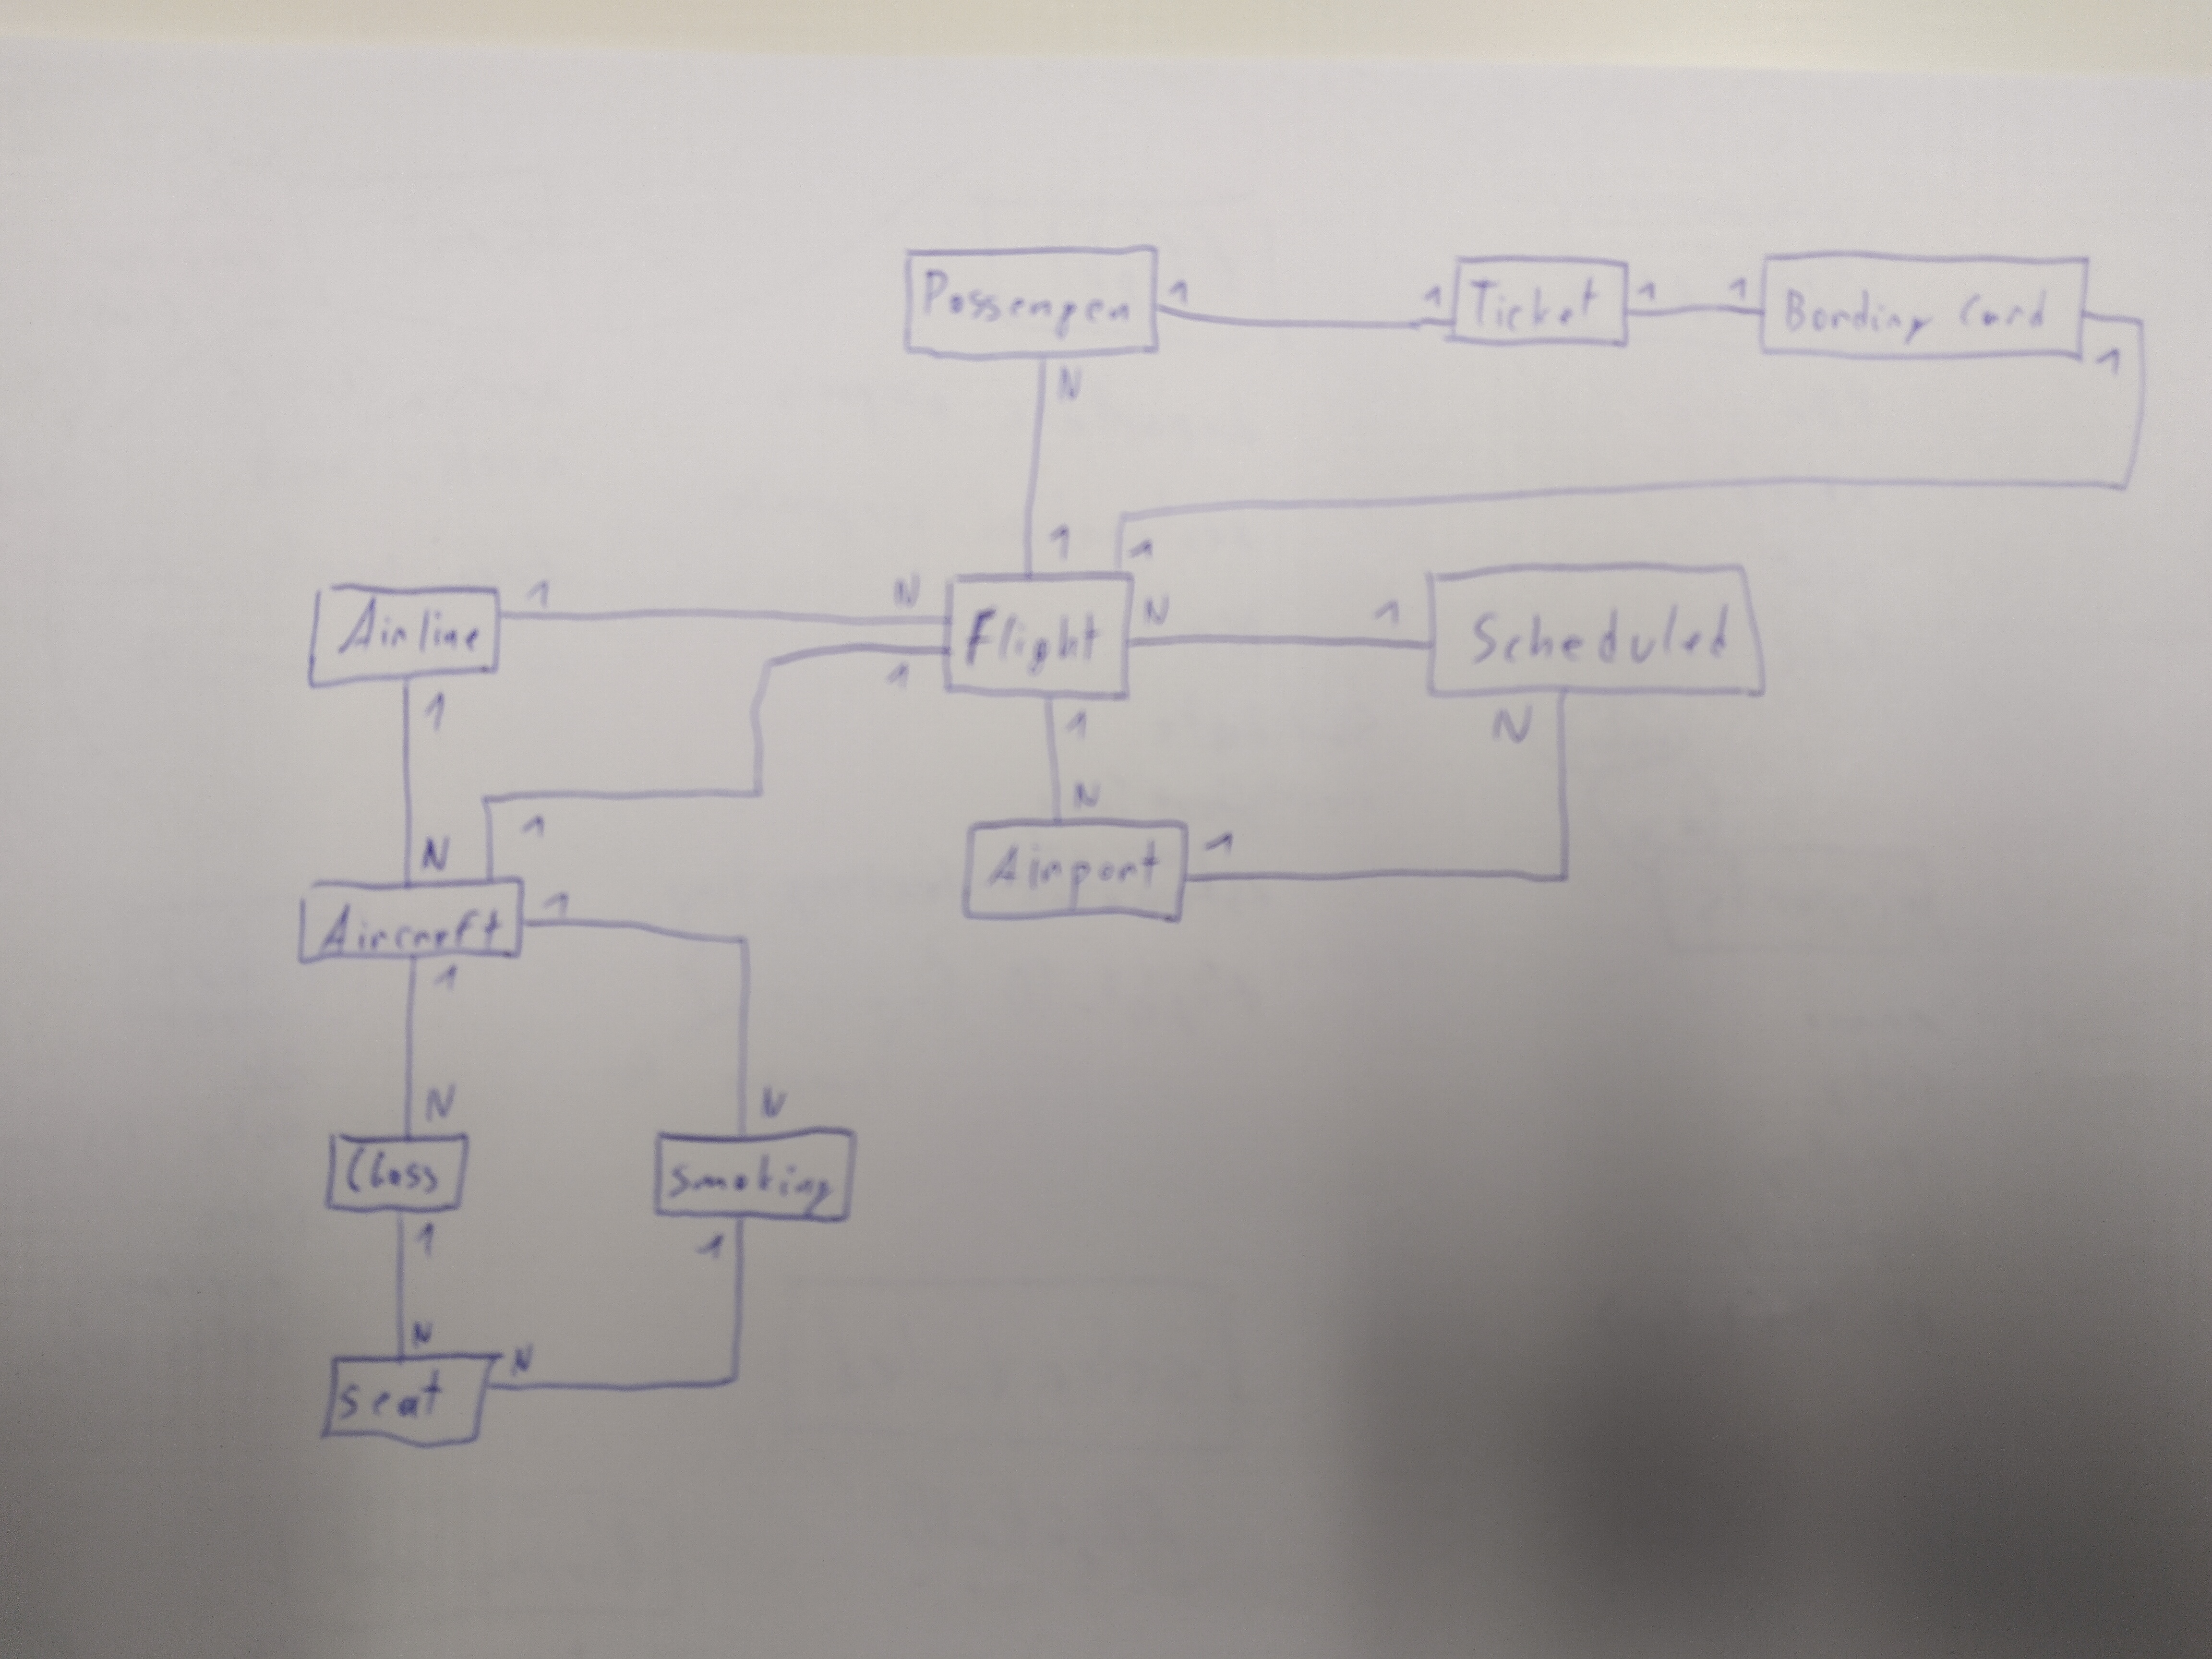 Passenger 1 1 Ticket 1 1 Bording Card
N 1
1 1
1 N
Airline Flight N 1 Scheduled
1 1 1 N
N 1 N 1
Aircraft 1 Airport
1
N N
Class Smoking
1 1
N
Seat N